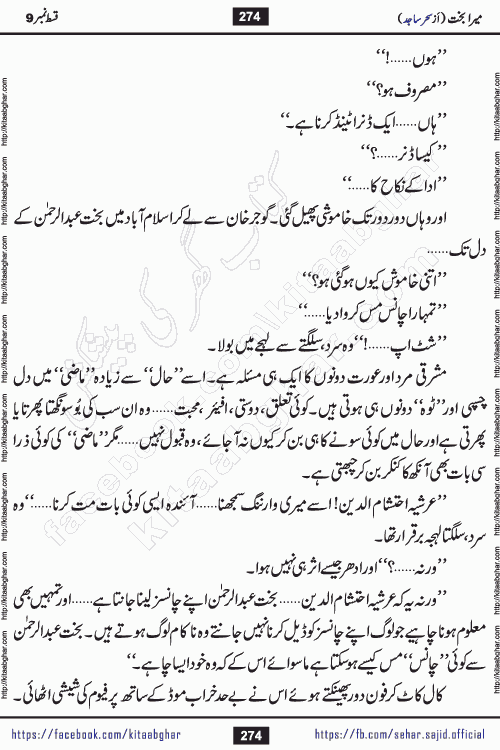 میرا بخت (از سحر ساجد)
274
قسط نمبر 9
’’ہوں……!‘‘
’’مصروف ہو؟‘‘
’’ہاں……ایک ڈنر اٹینڈ کرنا ہے۔‘‘
’’کیسا ڈنر……؟‘‘
’’ادا کے نکاح کا……‘‘
اور وہاں دور دور تک خاموشی پھیل گئی۔ گوجر خان سے لے کر اسلام آباد میں بخت عبدالرحمٰن کے
دل تک……
’’اتنی خاموش کیوں ہو گئی ہو؟‘‘
’’تمہارا چانس مس کروا دیا……‘‘
’’شٹ اپ……!‘‘ وہ سرد، سلگتے سے لہجے میں بولا۔
مشرقی مرد اور عورت دونوں کا ایک ہی مسئلہ ہے۔ اسے ’’حال‘‘ سے زیادہ ’’ماضی‘‘ میں دل
چسپی اور ’’ٹوہ‘‘ دونوں ہی ہوتی ہیں۔ کوئی تعلق، دوستی، افیئر، محبت……وہ ان سب کی بُو سونگھتا پھرتا یا
پھرتی ہے اور حال میں کوئی سونے کا ہی بن کر کیوں نہ آ جائے، وہ قبول نہیں……مگر ’’ماضی‘‘ کی کوئی ذرا
سی بات بھی آنکھ کا کنکر بن کر چبھتی ہے۔
’’عرشیہ احتشام الدین! اسے میری وارننگ سمجھنا……آئندہ ایسی کوئی بات مت کرنا……‘‘ وہ
سرد، سلگتا لہجہ برقرار تھا۔
’’ورنہ……؟‘‘ اور ادھر جیسے اثر ہی نہیں ہوا۔
’’ورنہ یہ کہ عرشیہ احتشام الدین……بخت عبدالرحمٰن اپنے چانسز لینا جانتا ہے……اور تمہیں بھی
معلوم ہونا چاہیے جو لوگ اپنے چانسز کو ڈیل کرنا نہیں جانتے وہ ناکام لوگ ہوتے ہیں۔ بخت عبدالرحمٰن
سے کوئی ’’چانس‘‘ مس کیسے ہو سکتا ہے ماسوائے اس کے کہ وہ خود ایسا چاہے۔‘‘
کال کاٹ کر فون دور پھینکتے ہوئے اس نے بے حد خراب موڈ کے ساتھ پرفیوم کی شیشی اٹھائی۔
https://facebook.com/kitaabghar
274
https://fb.com/sehar.sajid.official
http://kitaabghar.com http://kitaabghar.com http://kitaabghar.com http://kitaabghar.com http://kitaabghar.com http://kitaabghar.com http://kitaabghar.com http://kitaabghar.com
http://kitaabghar.com http://kitaabghar.com http://kitaabghar.com http://kitaabghar.com http://kitaabghar.com http://kitaabghar.com http://kitaabghar.com http://kitaabghar.com